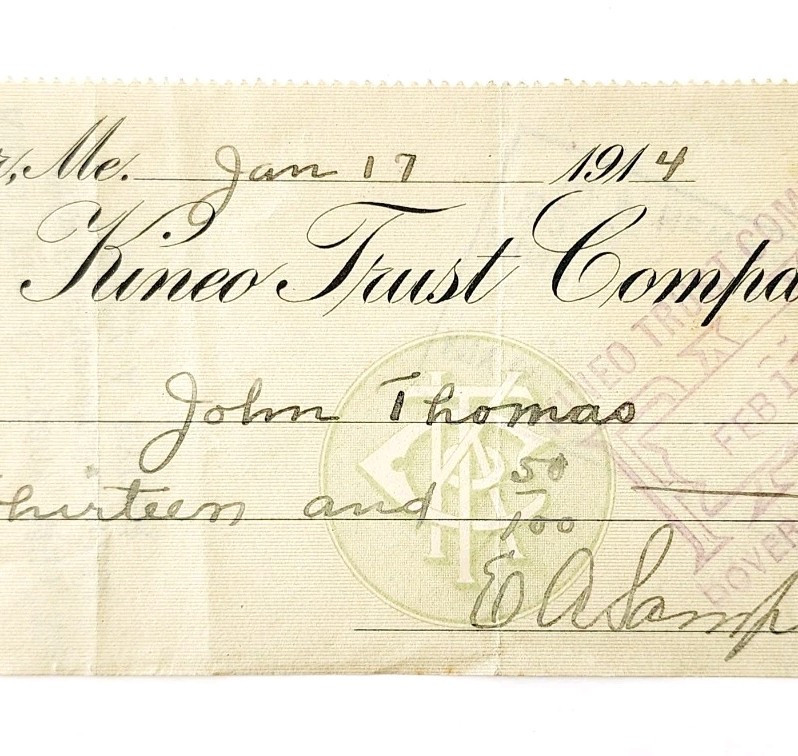 r, Me. Jan 17 1914
Kineo Trust Compa
John Thomas
Thirteen and 50/100
E A Samp
KINEO TRUST COM
FEB 1
DOVER